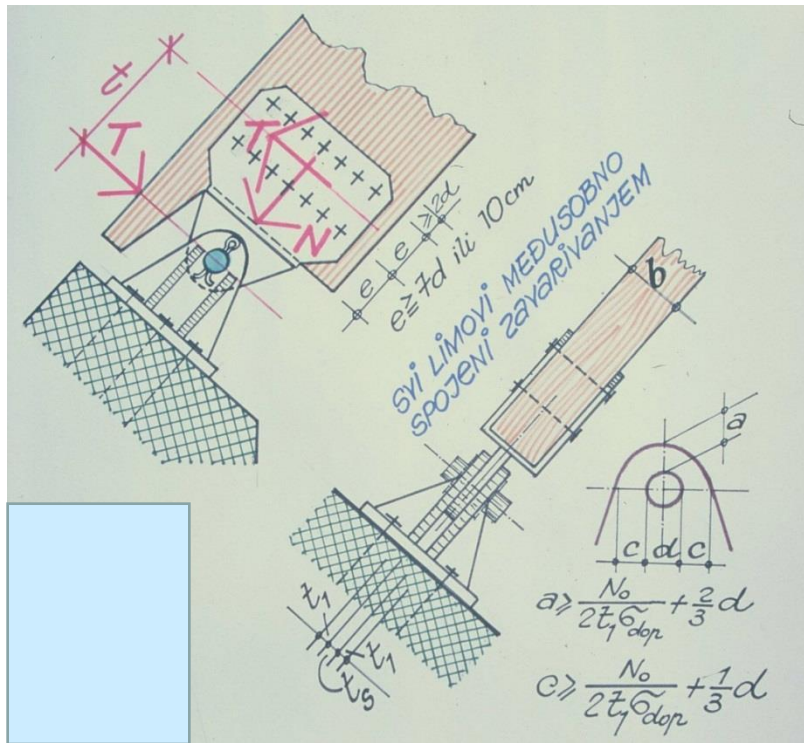 t
T
T
N
e
e
≥2d
e≥7d ili 10cm
SVI LIMOVI MEĐUSOBNO
SPOJENI ZAVARIVANJEM
b
a
c d c
t₁
t₁
tₛ
a≥ N₀/2t₁σdop + 2/3 d
c≥ N₀/2t₁σdop + 1/3 d